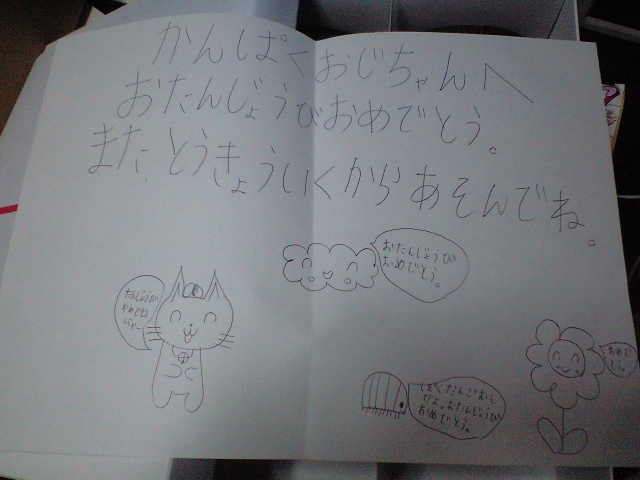 かんぱくおじちゃんへ
おたんじょうびおめでとう。
また、とうきょういくからあそんでね。
おたんじょうび
おめでとう。
たんじょうび
おめでとう
おめで
とう。
ぼくだんごむし
だよ。おたんじょうび
おめでとう。